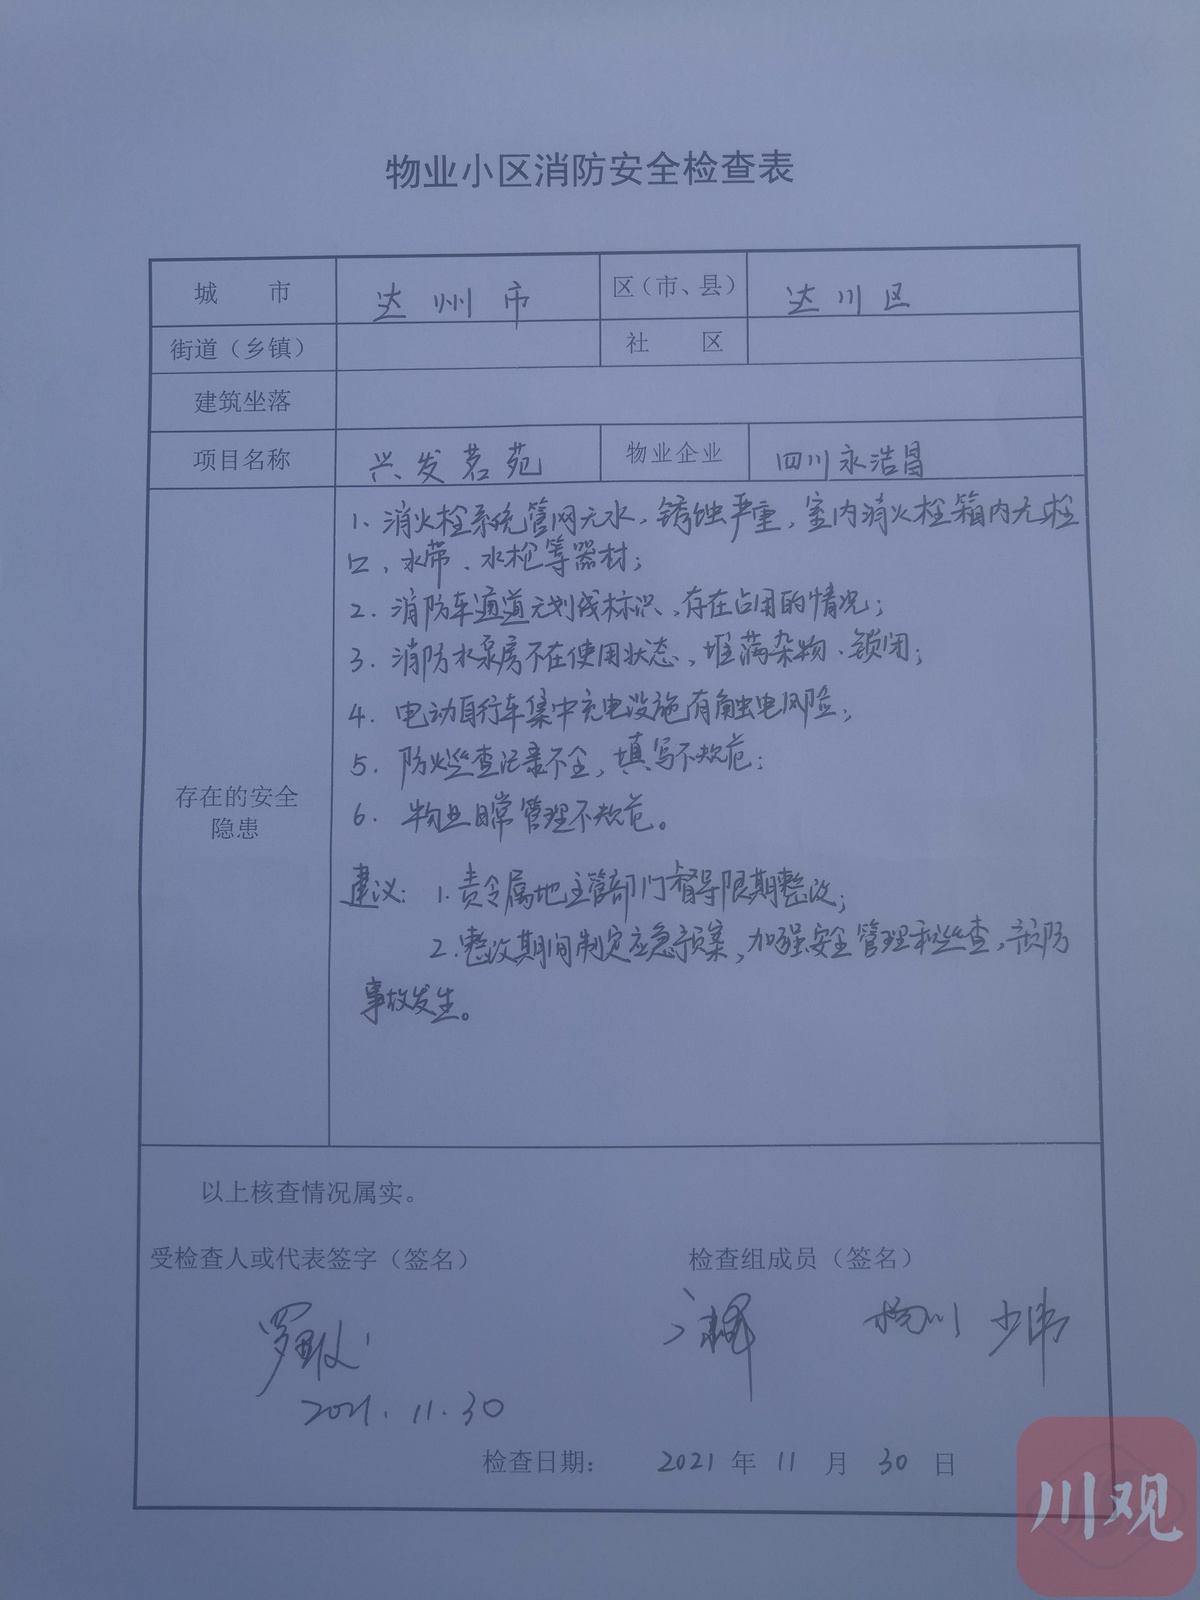 物业小区消防安全检查表
城 市 达州市 区（市、县） 达川区
街道（乡镇） 社 区
建筑坐落
项目名称 兴发茗苑 物业企业 四川永浩昌
1、消火栓系统管网无水，锈蚀严重，室内消火栓箱内无栓
口、水带、水枪等器材；
2. 消防车通道无划线标识，存在占用的情况；
3. 消防水泵房不在使用状态，堆满杂物、锁闭；
4. 电动自行车集中充电设施有触电风险；
5. 防火巡查记录不全，填写不规范；
6. 物业日常管理不规范。
存在的安全
隐患
建议：1. 责令属地主管部门督导限期整改；
2. 整改期间制定应急预案，加强安全管理和巡查，预防
事故发生。
以上核查情况属实。
受检查人或代表签字（签名） 检查组成员（签名）
2021.11.30
检查日期： 2021 年 11 月 30 日
川观